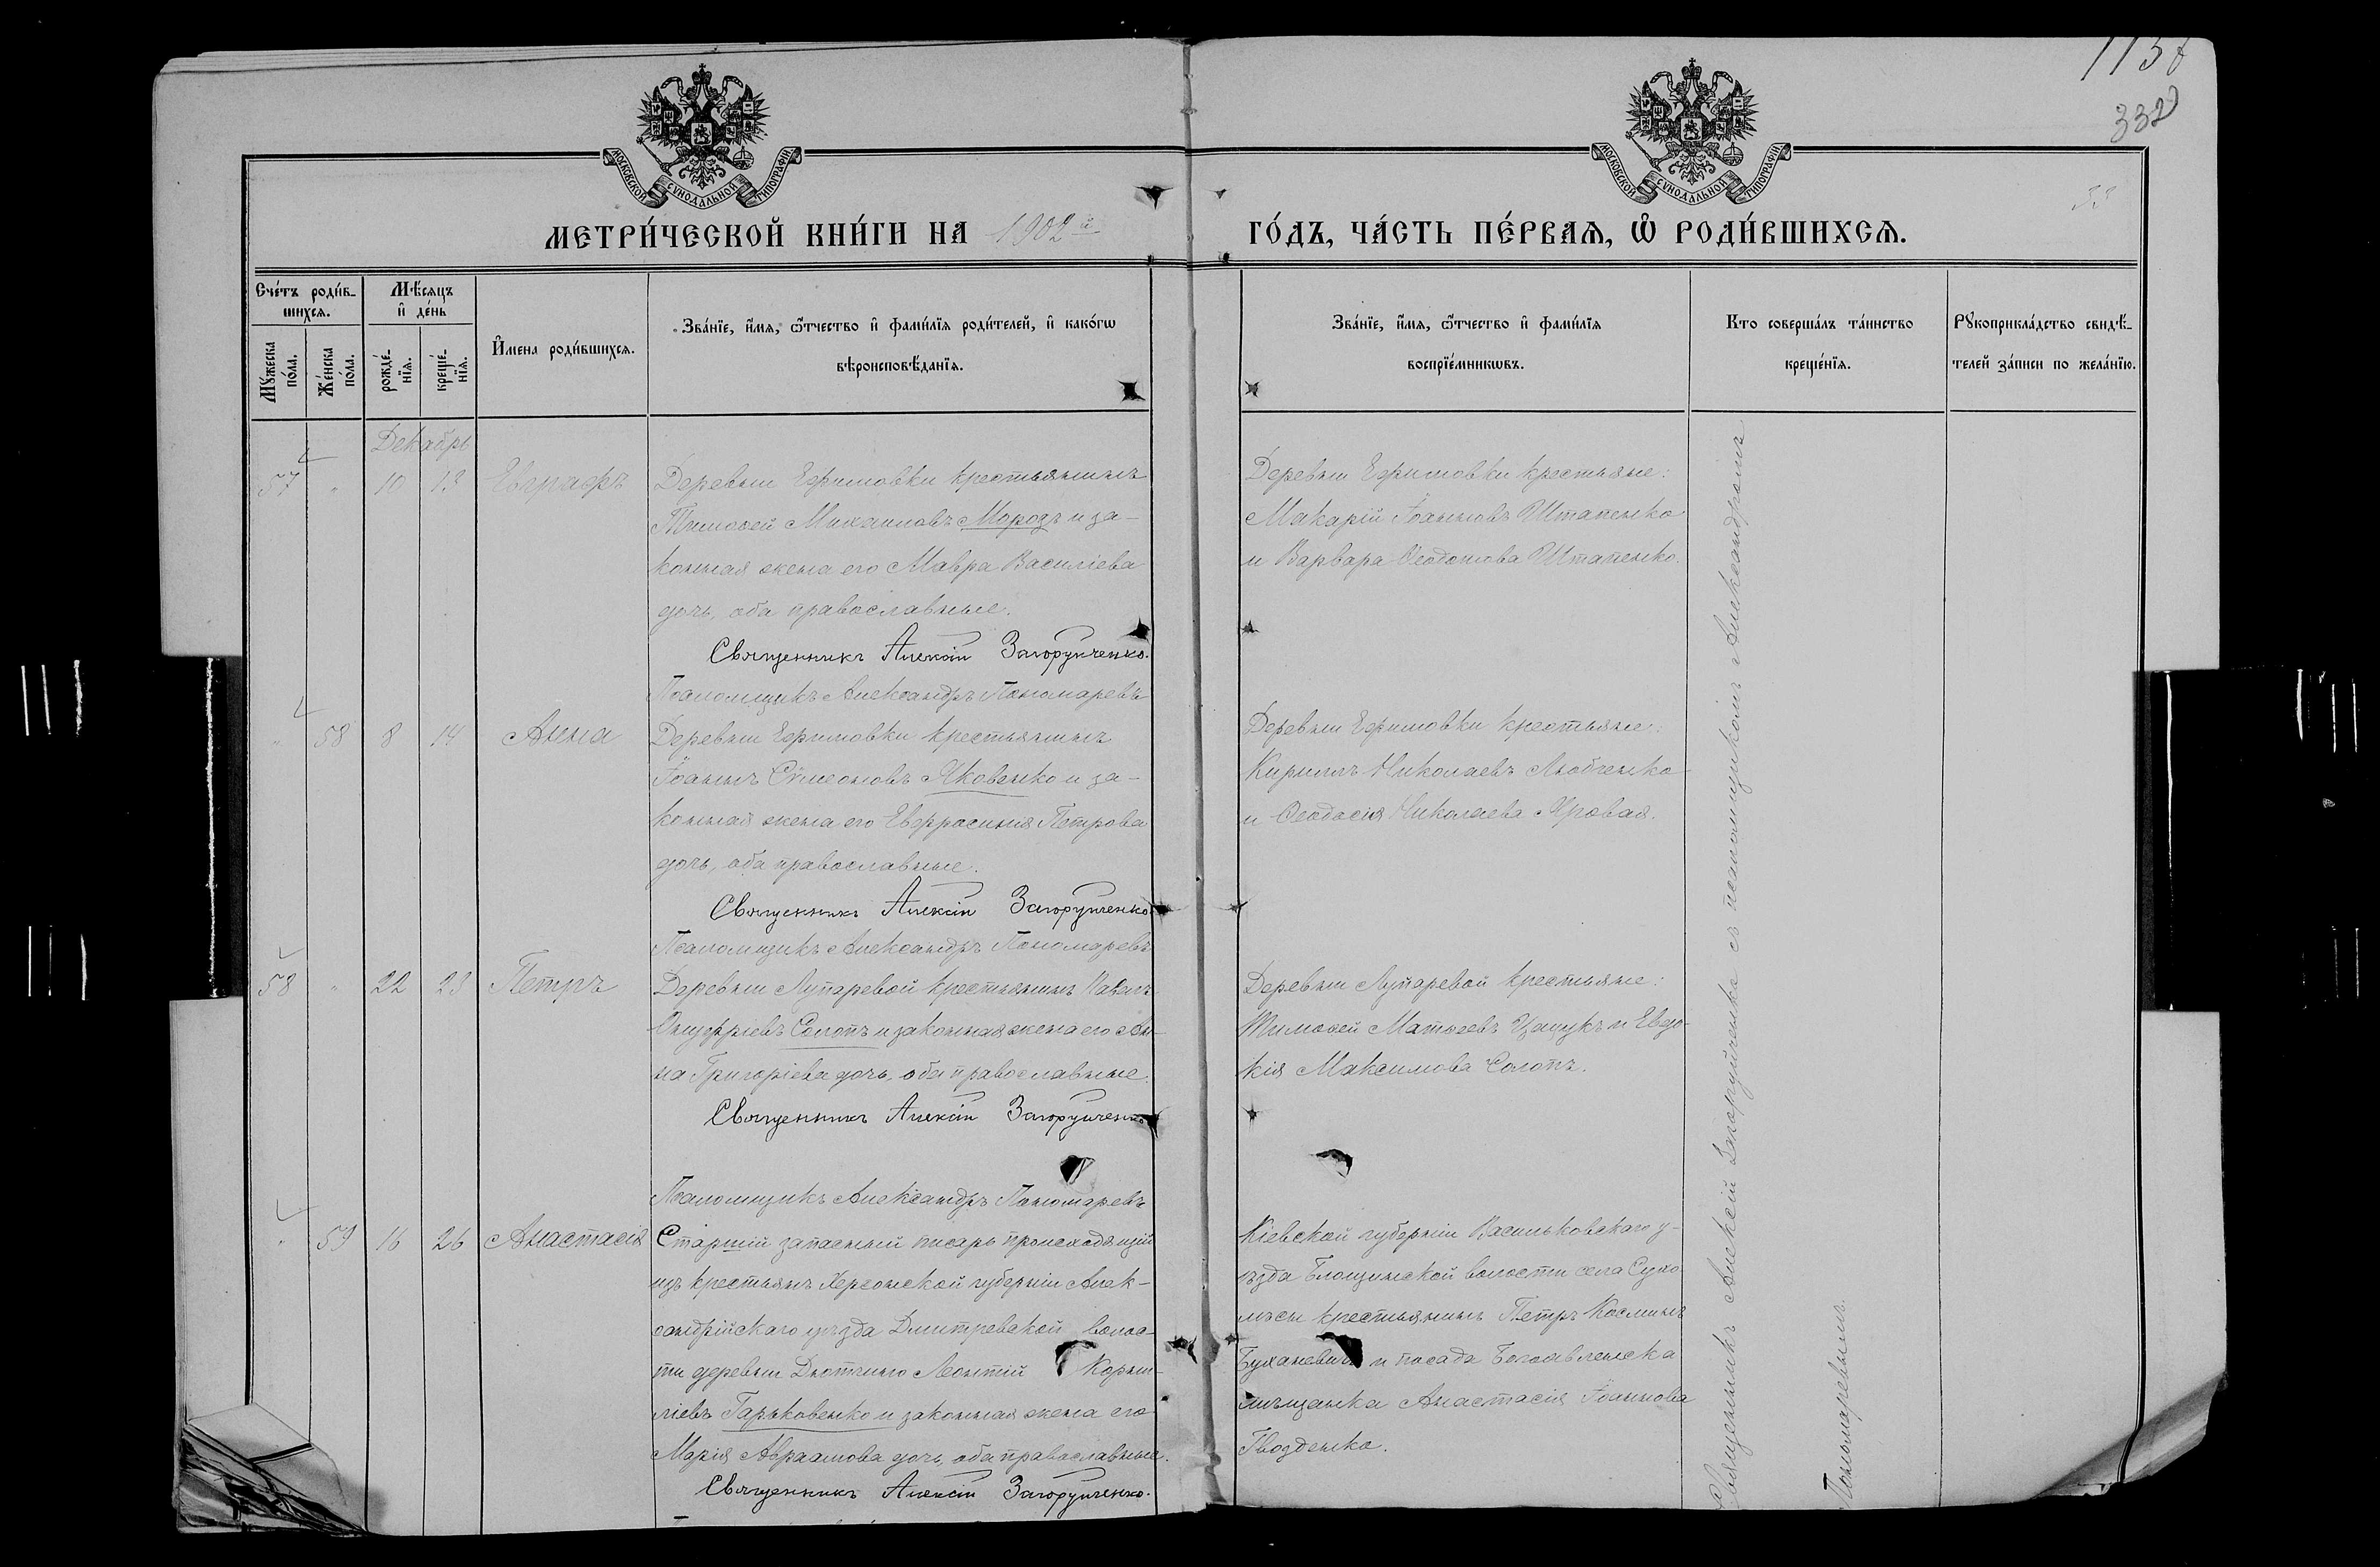 1136
332
МОСКОВСКОЙ СУНОДАЛЬНОЙ ТИПОГРАФІИ
МОСКОВСКОЙ СУНОДАЛЬНОЙ ТИПОГРАФІИ
МЕТРИ́ЧЕСКОЙ КНИ́ГИ НА 1902й
ГО́ДЪ, ЧА́СТЬ ПЕ́РВАЯ, Ѡ҆ РОДИ́ВШИХСЯ.
Сче́тъ роди́в-
шихся.
Мꙋ́жеска по́ла.
Же́нска по́ла.
Мѣ́сяцъ
и҆ де́нь
рожде́-
нїя.
креще́-
нїя.
И҆мена роди́вшихся.
Зва́нїе, и҆́мя, ѻ҆́тчество и҆ фами́лїя роди́телей, и҆ како́гѡ
вѣроисповѣ́данїя.
Зва́нїе, и҆́мя, ѻ҆́тчество и҆ фами́лїя
воспрїе́мникѡвъ.
Кто соверша́лъ та́инство
креще́нїя.
Рꙋкоприкла́дство свидѣ́-
телей за́писи по жела́нїю.
Декабрь
57 " 10 13 Евграфъ
Деревни Ефимовки крестьянинъ
Тимоѳей Михаиловъ Морозъ и за-
конная жена его Мавра Василіева
дочь, оба православные.
Священникъ Алексій Загоруйченко.
Псаломщикъ Александръ Пономаревъ
Деревни Ефимовки крестьяне:
Макарій Іоанновъ Штапенко
и Варвара Ѳеодотова Штапенко.
" 58 8 14 Анна
Деревни Ефимовки крестьянинъ
Іоаннъ Сѵмеоновъ Яковенко и за-
конная жена его Евфросинія Петрова
дочь, оба православные.
Священникъ Алексій Загоруйченко
Псаломщикъ Александръ Пономаревъ
Деревни Ефимовки крестьяне:
Кириллъ Николаевъ Любченко
и Ѳеодосія Николаева Яровая.
58 " 22 23 Петръ
Деревни Лупаревой крестьянинъ Павелъ
Онуфріевъ Солопъ и законная жена его Ан-
на Григоріева дочь, оба православные.
Священникъ Алексій Загоруйченко
Псаломщикъ Александръ Пономаревъ
Деревни Лупаревой крестьяне:
Тимоѳей Матѳеевъ Цацукъ и Евдо-
кія Максимова Солопъ.
" 59 16 26 Анастасія
Старшій запасный писарь происходящій
изъ крестьянъ Херсонской губерніи Алек-
сандрійскаго уѣзда Дмитревской волос-
ти деревни Леонтій Корни-
ліевъ Гарьковенко и законная жена его
Марія Авраамова дочь, оба православные.
Священникъ Алексій Загоруйченко.
Кіевской губерніи Васильковскаго у-
ѣзда Блощинской волости села Сухо-
лѣсы крестьянинъ Петръ Косминъ
Буханевичъ и посада Богоявленска
мѣщанка Анастасія Іоаннова
Гвозденко.
Священникъ Алексій Загоруйченко съ псаломщикомъ Александромъ
Пономаревымъ.